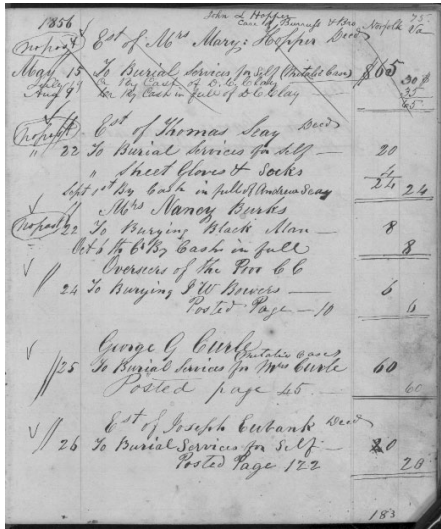 1856 John L Hopper 75
Care of Burruss & Bro Norfolk Va
no post Est of Mrs Mary Hopper Decd
May 15 To Burial Services for Self (Metalic Case) $65
July 29 By Cash of D. C. Clay 30
Aug 9 By Cash in full of D C Clay 35
65
no post Est of Thomas Seay Decd
" 22 To Burial Services for Self — 20
" Sheet Gloves & Socks — 4
24
Sept 1st By Cash in full of Andrew Seay 24
Mrs Nancy Burks
no post 22 To Burying Black Man — 8
Oct 6th By Cash in full 8
Overseers of the Poor C C
" 24 To Burying J W Bowers — 6
Posted Page — 10 6
George G Curle
Metalic Cases
" 25 To Burial Services for Mrs Curle 60
Posted page 45 — 60
Est of Joseph Eubank Decd
" 26 To Burial Services for Self — 20
Posted Page 122 20
183